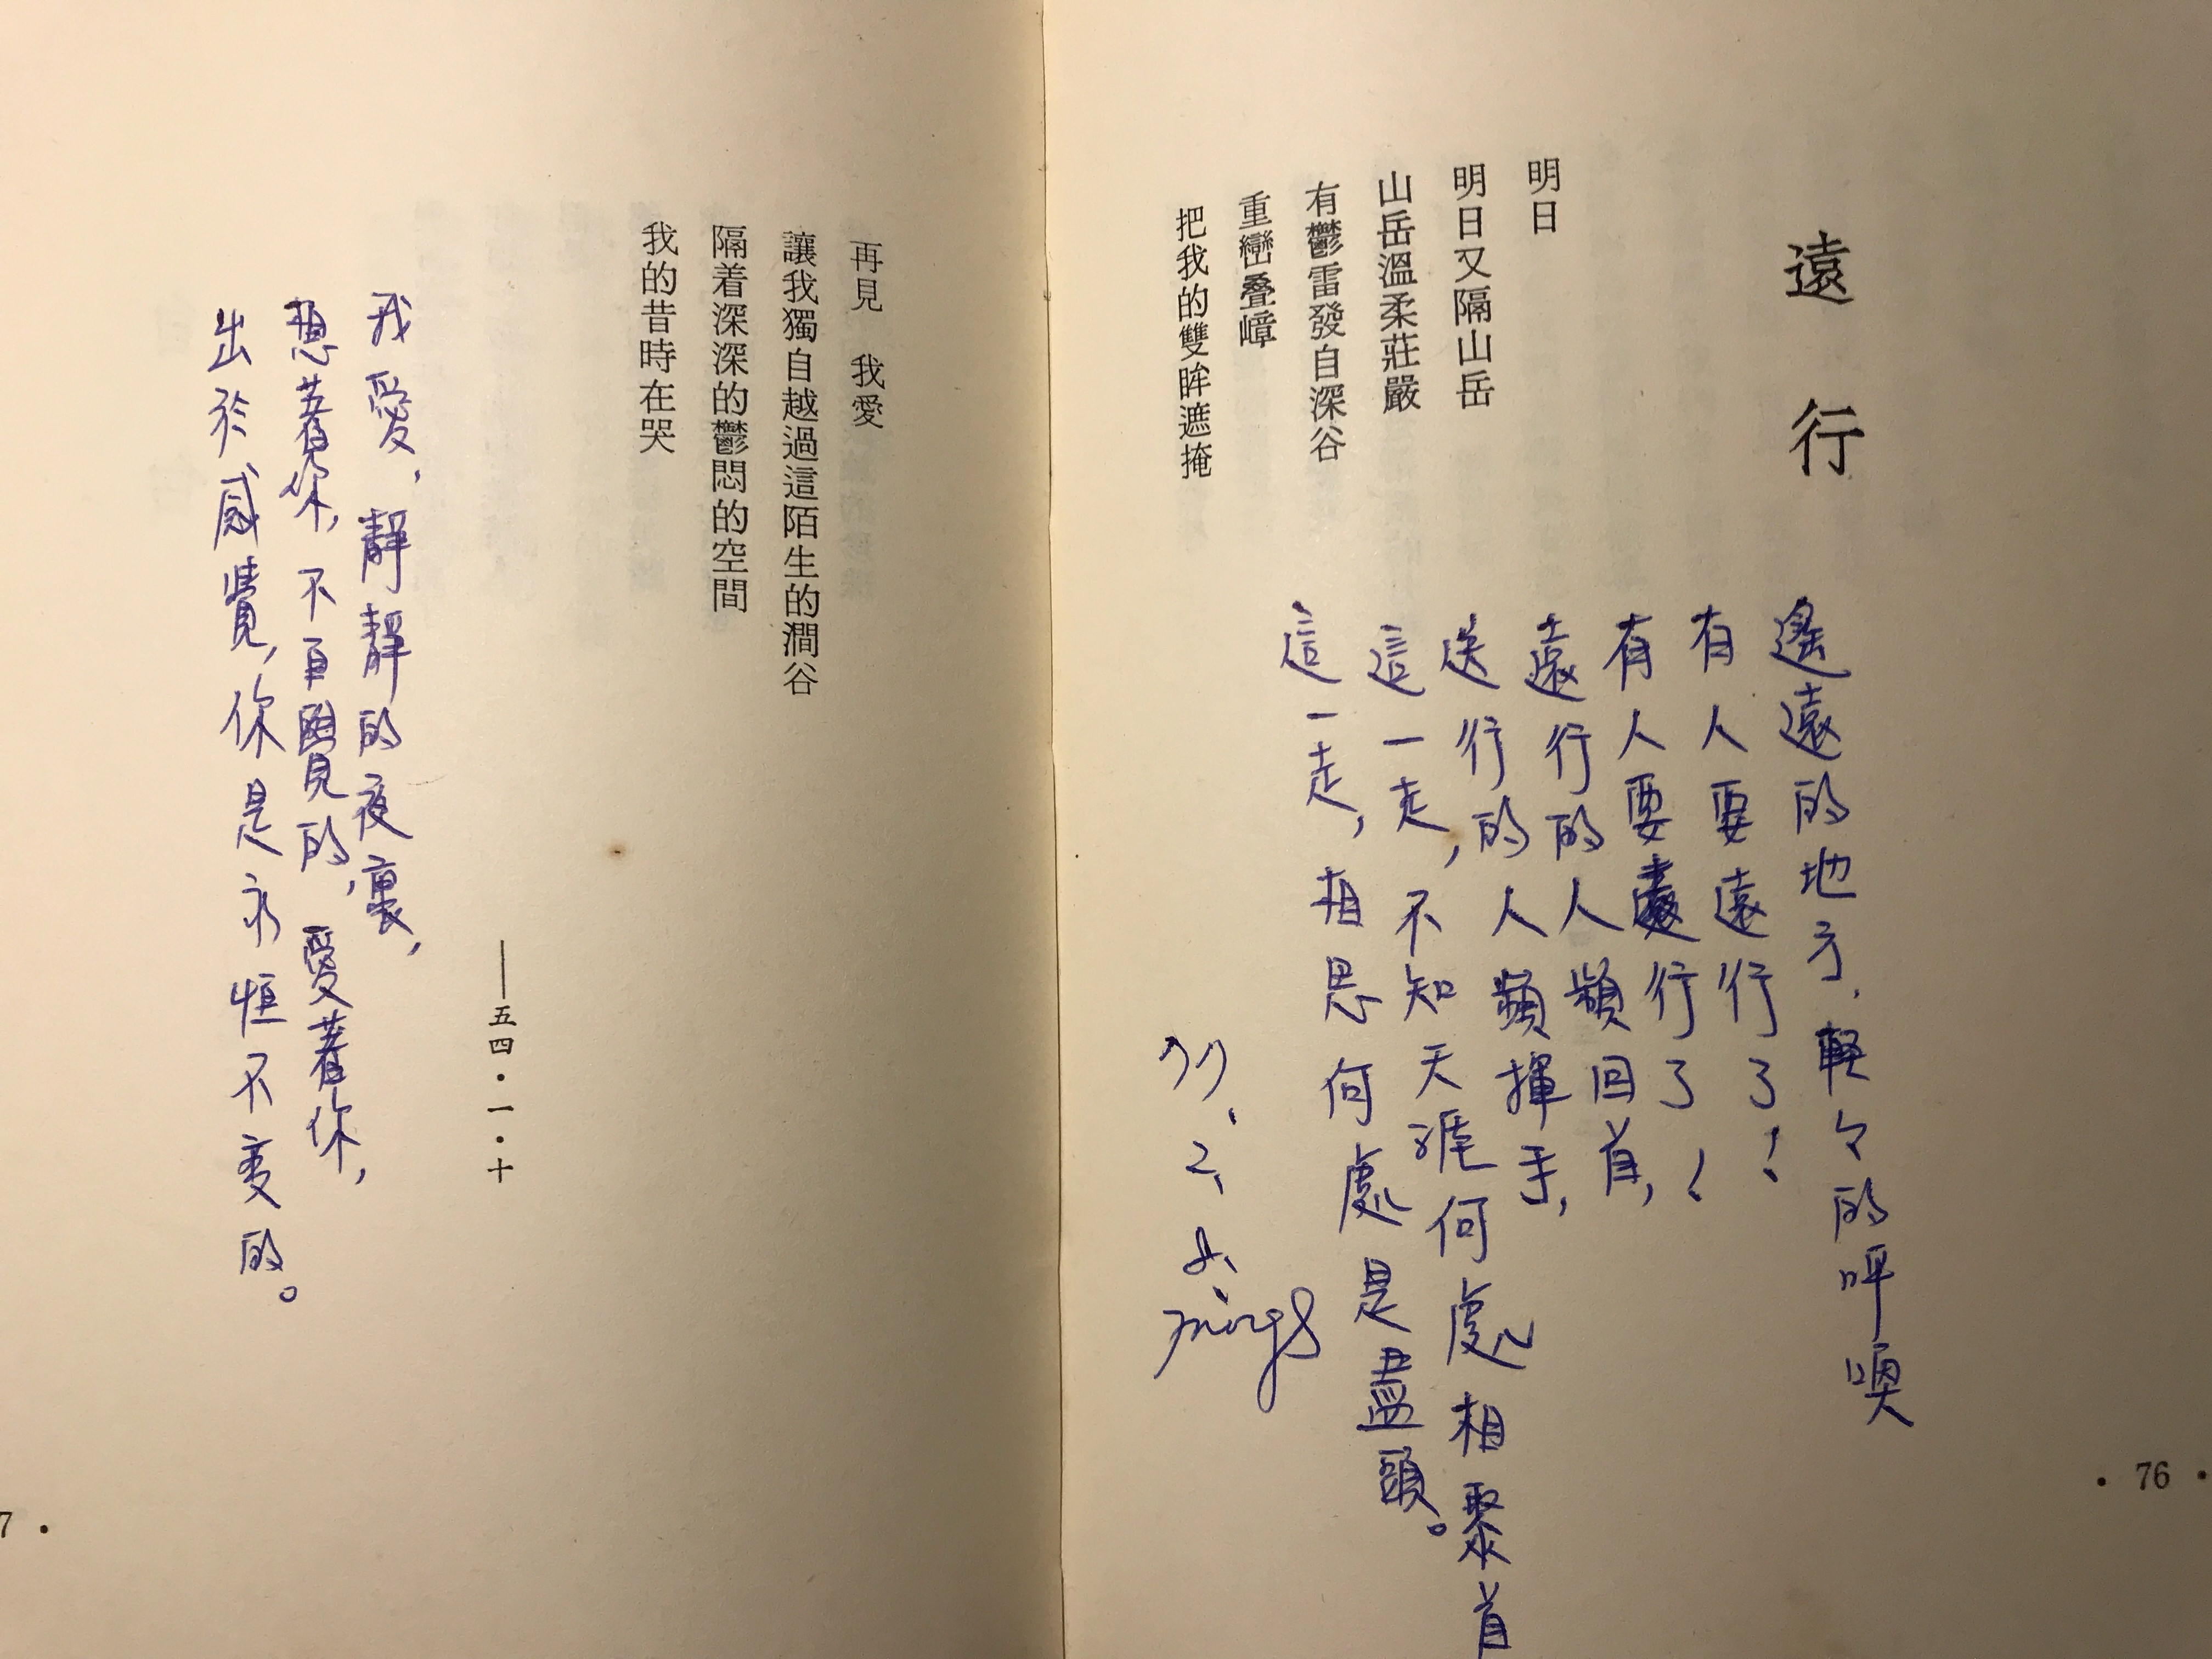 遠行
明日
明日又隔山岳
山岳溫柔莊嚴
有鬱雷發自深谷
重巒叠嶂
把我的雙眸遮掩
遙遠的地方，輕々的呼喚
有人要遠行了！
有人要遠行了！
遠行的人頻回首，
送行的人頻揮手，
這一走，不知天涯何處相聚首
這一走，相思何處是盡頭。
• 76 •
再見 我愛
讓我獨自越過這陌生的澗谷
隔着深深的鬱悶的空間
我的昔時在哭
——五四・一・十
我愛，靜靜的夜裏，
想著你，不自覺的，愛著你，
出於感覺，你是永恒不變的。
7 •